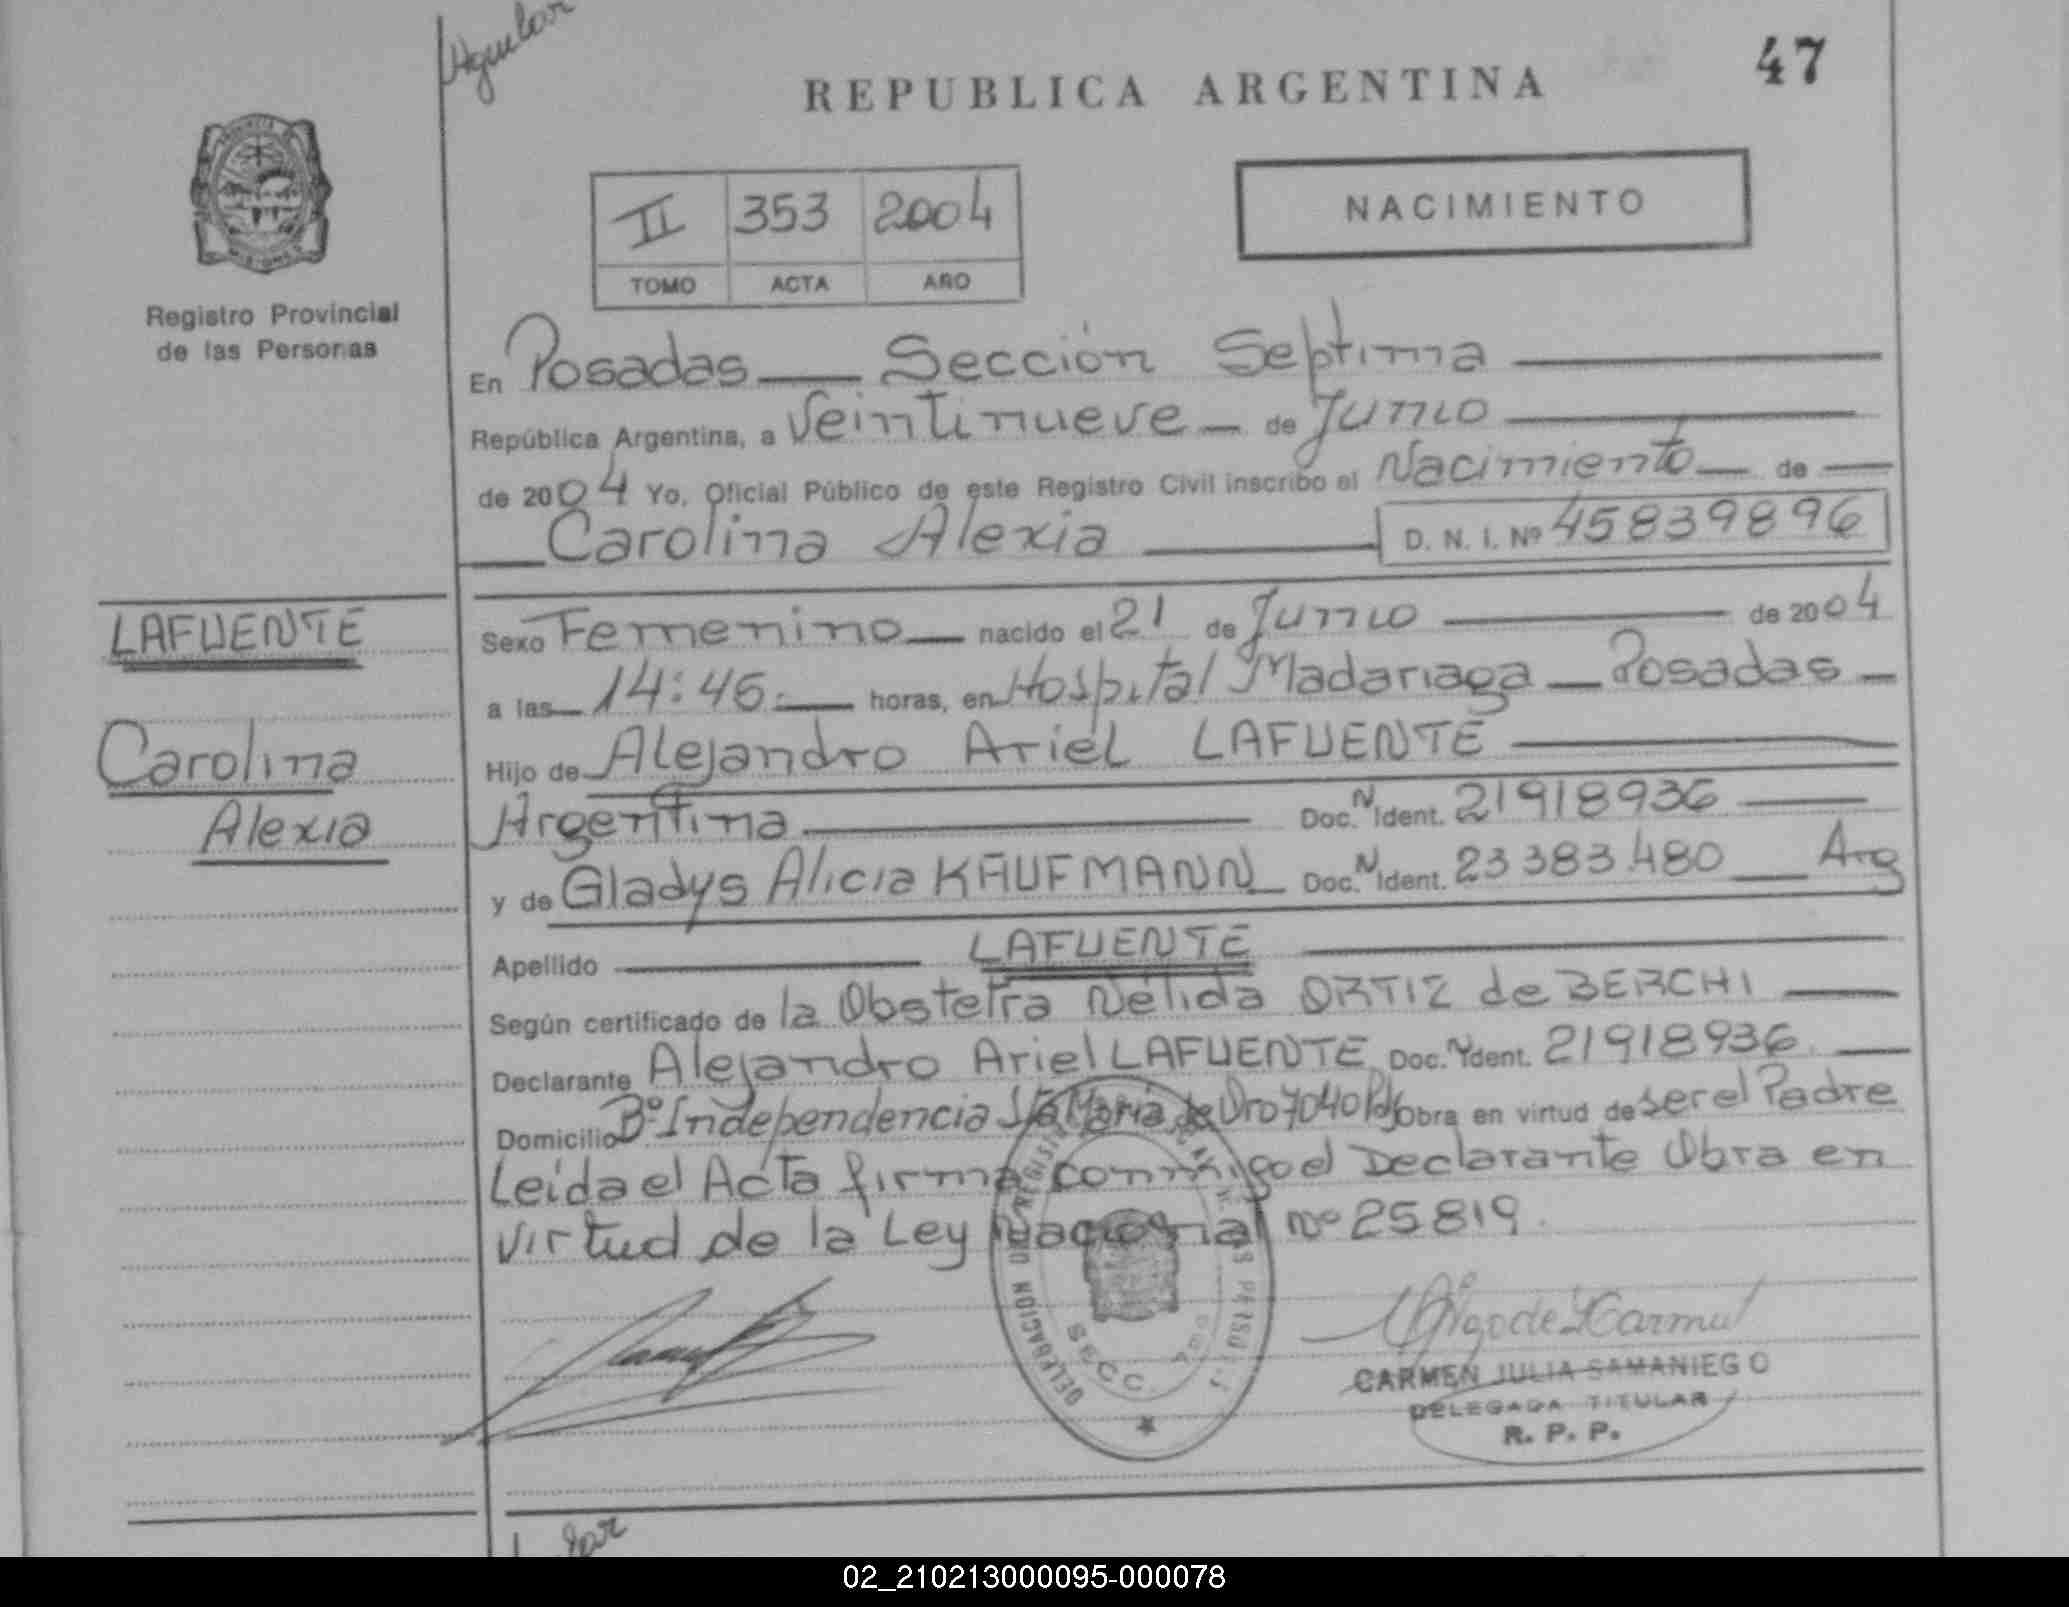 Aguilar
REPUBLICA ARGENTINA
47
II 353 2004
TOMO ACTA AÑO
NACIMIENTO
Registro Provincial
de las Personas
En Posadas Sección Septima
República Argentina, a Veintinueve de Junio
de 2004 Yo, Oficial Público de este Registro Civil inscribo el Nacimiento de
Carolina Alexia D. N. I. Nº 45839896
LAFUENTE
Carolina
Alexia
Sexo Femenino nacido el 21 de Junio de 2004
a las 14:45 horas, en Hospital Madariaga Posadas
Hijo de Alejandro Ariel LAFUENTE
Argentina Doc. N Ident. 21918936
y de Gladys Alicia KAUFMANN Doc. N Ident. 23383480 Arg
Apellido LAFUENTE
Según certificado de la Obstetra Nélida ORTIZ de BERCHI
Declarante Alejandro Ariel LAFUENTE Doc. Ident. 21918936
Domicilio Bº Independencia Maria de Oro 7040 Obra en virtud de ser el Padre
Leída el Acta firma conmigo el Declarante Obra en
virtud de la Ley Nacional nº 25819.
DELEGACION
SECC.
CARMEN JULIA SAMANIEGO
DELEGADA TITULAR
R. P. P.
02_210213000095-000078